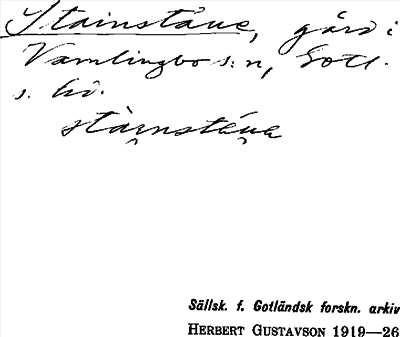 Stainstäue, gård i
Vamlingbo s:n, Gotl.
s. hd.
stài̯nstéu̯e
Sällsk. f. Gotländsk forskn. arkiv
HERBERT GUSTAVSON 1919—26